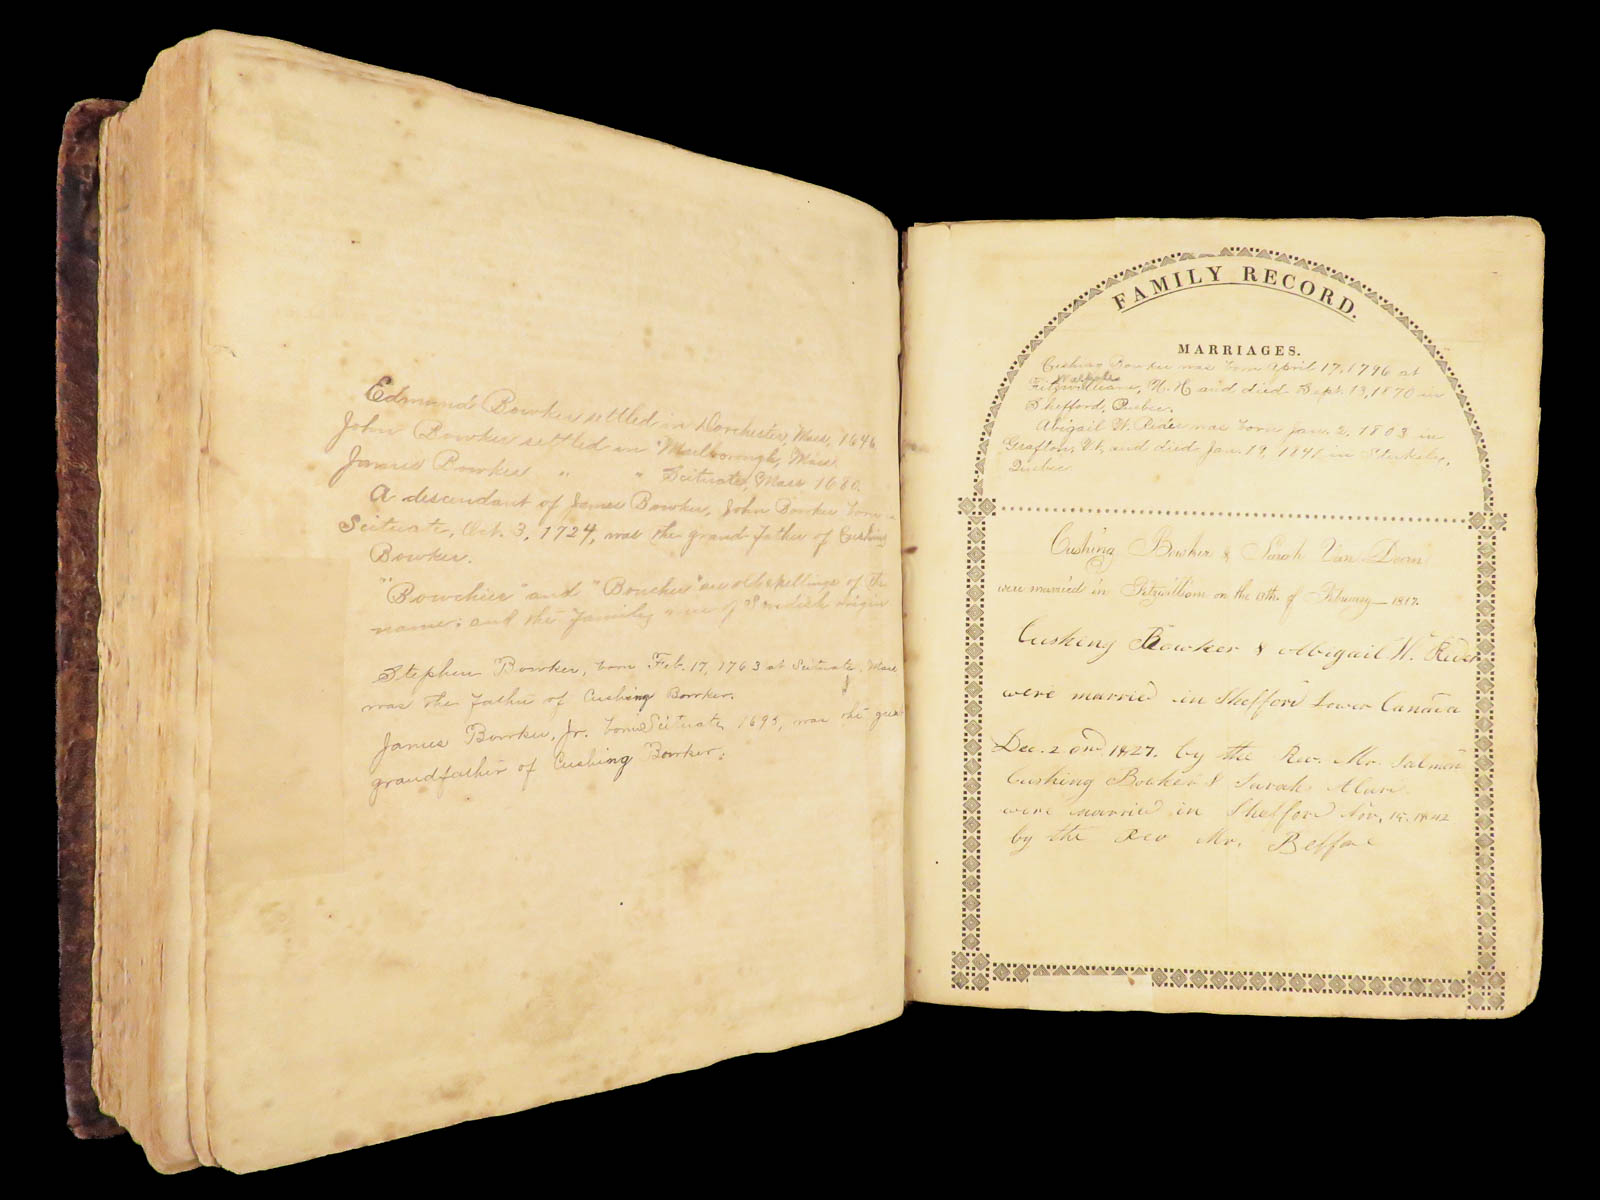 Edmund Bowker settled in Dorchester, Mass, 1646
John Bowker settled in Marlborough, Mass
James Bowker " " Scituate, Mass 1680.
A descendant of James Bowker, John Bowker born
Scituate, Oct. 3, 1724, was the grand father of Cushing
Bowker.
"Bowckier" and "Boucker" are old spellings of the
name; and the family are of Swedish origin
Stephen Bowker, born Feb. 17, 1763 at Scituate, Mass
was the father of Cushing Bowker.
James Bowker, Jr. born Scituate, 1695, was the great
grandfather of Cushing Bowker.
FAMILY RECORD.
MARRIAGES.
Cushing Bowker was born April 17, 1796 at
Walpole
Fitzwilliam, N.H and died Sept. 13, 1870 in
Shefford, Quebec.
Abigail W. Rider was born Jan. 2, 1803 in
Grafton, Vt, and died Jan. 19, 1841 in Stukeley,
Quebec
Cushing Bowker & Sarah Van Doorn
were married in Fitzwilliam on the 13th. of February 1817.
Cushing Bowker & Abigail W. Rider
were married in Shefford Lower Canada
Dec. 2 ond 1827. by the Rev. Mr. Salmon
Cushing Bowker & Sarah
were married in Shefford Nov, 1842
by the Rev Mr.